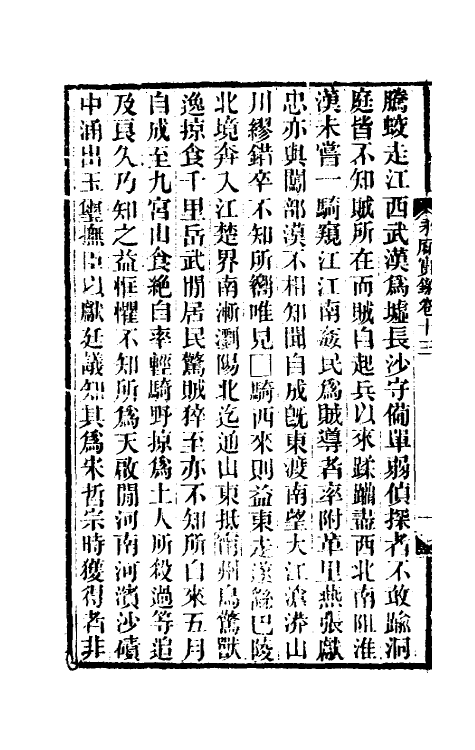 永曆實錄卷十三
騰蛟走江西武漢爲墟長沙守備單弱偵探者不敢踰洞
庭皆不知賊所在而賊自起兵以來蹂躪盡西北南阻淮
漢未嘗一騎窺江江南姦民爲賊導者率附革里燕張獻
忠亦與闖部漠不相知聞自成旣東渡南望大江滄漭山
川繆錯卒不知所嚮唯見□騎西來則益東走蒲巴陵
北境奔入江楚界南漸瀏陽北迄通山東抵州鳥驚獸
逸掠食千里岳武閒居民驚賊猝至亦不知所自來五月
自成至九宮山食絕自率輕騎野掠爲土人所殺過等追
及良久乃知之益恇懼不知所爲天啟閒河南河濱沙磧
中涌出玉璽撫臣以獻廷議知其爲宋哲宗時獲得者非